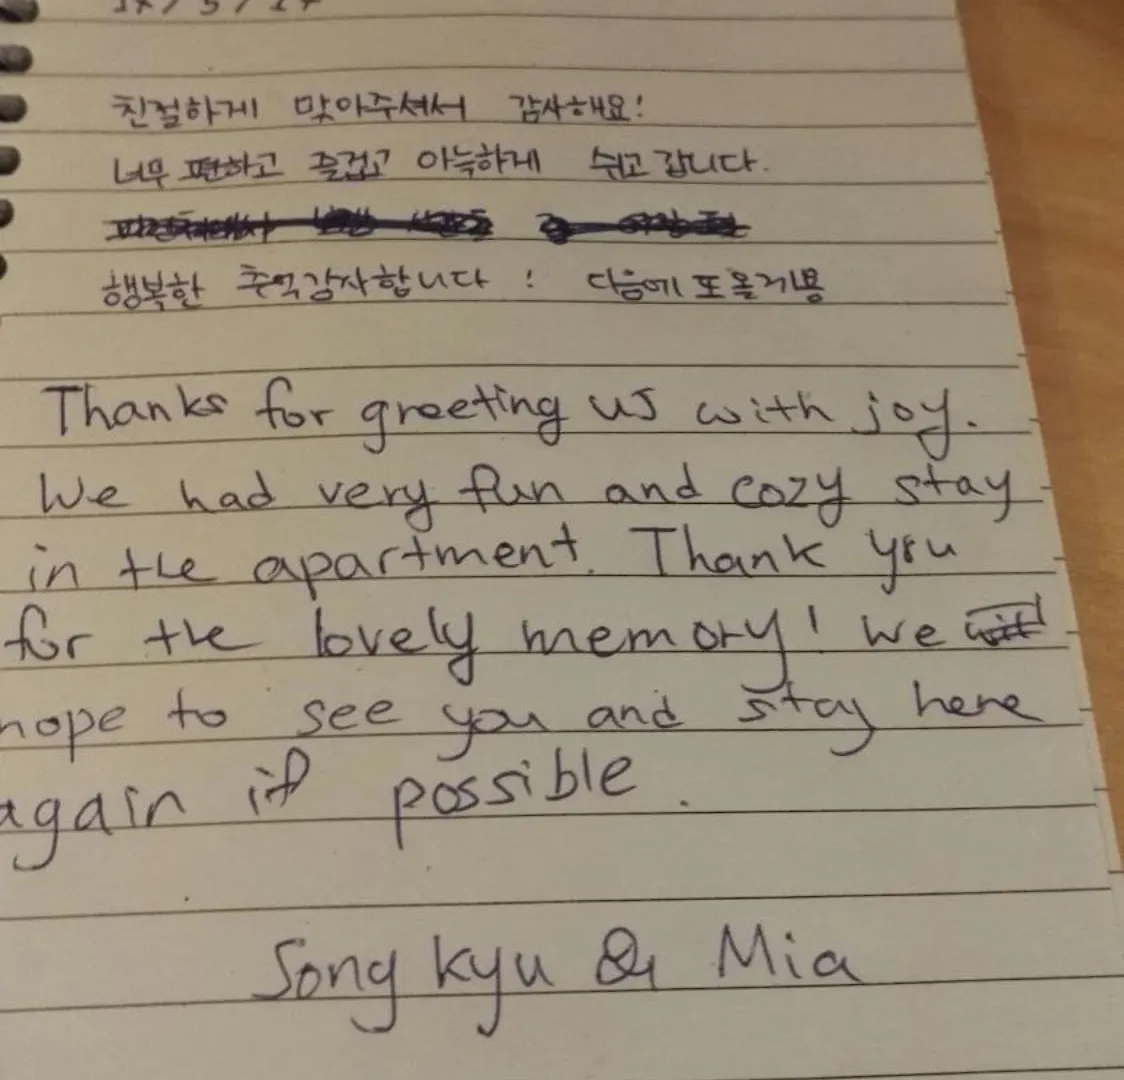 친절하게 맞아주셔서 감사해요!
너무 편하고 즐겁고 아늑하게 쉬고 갑니다.
행복한 추억감사합니다! 다음에 또 올게용
Thanks for greeting us with joy.
We had very fun and cozy stay
in the apartment. Thank you
for the lovely memory! We
hope to see you and stay here
again if possible.
Song kyu & Mia